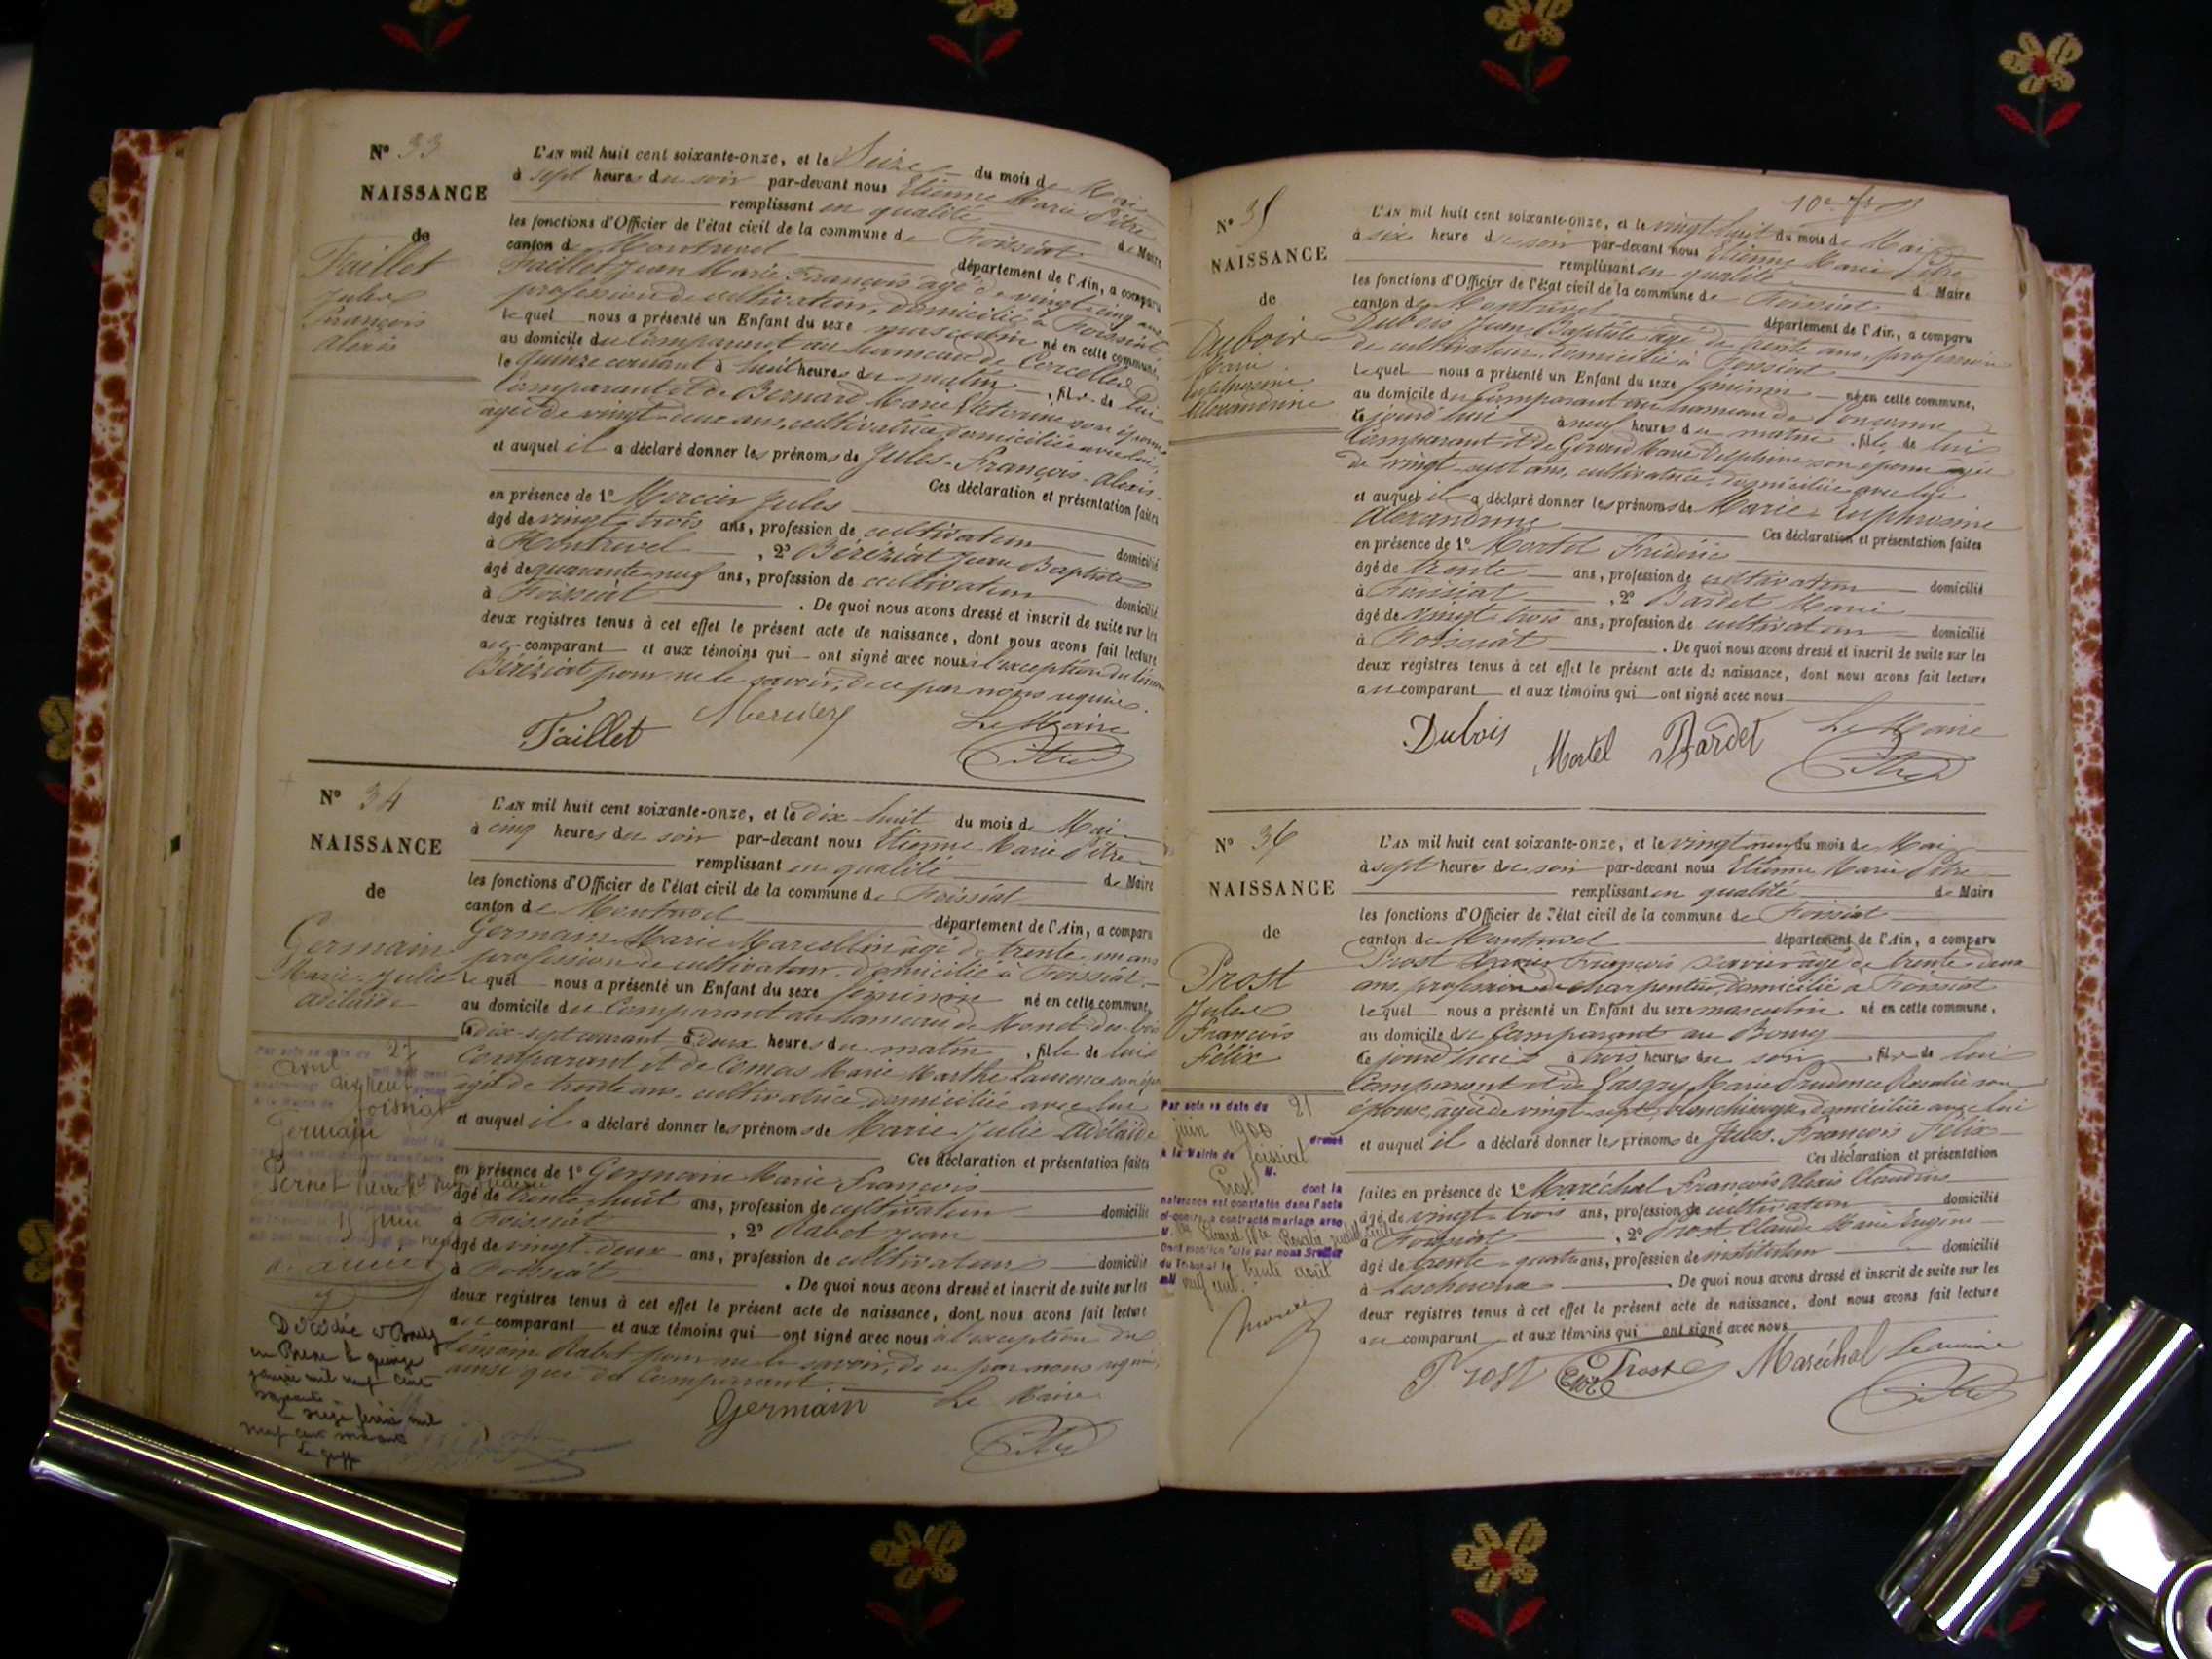 N° 33
NAISSANCE
de
Faillet
Jules
François
Alexis
L'AN mil huit cent soixante-onze, et le Seize du mois de Mai
à sept heures du soir par-devant nous Etienne Marie Pitre
remplissant en qualité de Maire
les fonctions d'Officier de l'état civil de la commune de Foissiat
canton de Montrevel département de l'Ain, a comparu
Faillet Jean Marie François âgé de vingt cinq ans
profession de cultivateur, domicilié à Foissiat,
lequel nous a présenté un Enfant du sexe masculin né en cette commune,
au domicile du Comparant au hameau de Corcelles
le quinze courant à huit heures du matin, fils de lui
Comparant et de Bernard Marie Victorine son épouse
âgée de vingt deux ans, cultivatrice domiciliée avec lui,
et auquel il a déclaré donner les prénoms de Jules-François-Alexis-
Ces déclaration et présentation faites
en présence de 1° Mercier Jules
âgé de vingt-trois ans, profession de cultivateur domicilié
à Montrevel, 2° Béréziat Jean Baptiste
âgé de quarante neuf ans, profession de cultivateur domicilié
à Foissiat. De quoi nous avons dressé et inscrit de suite sur les
deux registres tenus à cet effet le présent acte de naissance, dont nous avons fait lecture
au comparant et aux témoins qui ont signé avec nous à l'exception du témoin
Béréziat pour ne le savoir, de ce par nous requis.
Faillet Mercier Le Maire
Pitre
N° 34
NAISSANCE
de
Germain
Marie-Julie
Adélaïde
L'AN mil huit cent soixante-onze, et le dix huit du mois de Mai
à cinq heures du soir par-devant nous Etienne Marie Pitre
remplissant en qualité de Maire
les fonctions d'Officier de l'état civil de la commune de Foissiat
canton de Montrevel département de l'Ain, a comparu
Germain Marie Marcellin âgé de trente un ans
profession de cultivateur domicilié à Foissiat
lequel nous a présenté un Enfant du sexe féminin né en cette commune,
au domicile du Comparant au hameau de
le dix-sept courant à deux heures du matin, fille de lui
Comparant et de Comas Marie Marthe Laurence son
âgée de trente ans, cultivatrice domiciliée avec lui
et auquel il a déclaré donner les prénoms de Marie-Julie Adélaïde
Ces déclaration et présentation faites
en présence de 1° Germain Marie François
âgé de trente huit ans, profession de cultivateur domicilié
à Foissiat, 2° Rabet Jean
âgé de vingt-deux ans, profession de cultivateur domicilié
à Foissiat. De quoi nous avons dressé et inscrit de suite sur les
deux registres tenus à cet effet le présent acte de naissance, dont nous avons fait lecture
au comparant et aux témoins qui ont signé avec nous à l'exception du
témoin Rabet pour ne le savoir, de ce par nous requis
ainsi que du Comparant
Germain Le Maire
Pitre
Par acte en date du 27
avril
Foissiat
Germain
Pernet
15 juin
Décédée à Bourg
en Bresse le quinze
janvier mil neuf cent
N° 35
NAISSANCE
de
Dubois
Marie
Euphrosine
Alexandrine
L'AN mil huit cent soixante-onze, et le vingt huit du mois de Mai
à six heure du soir par-devant nous Etienne Marie Pitre
remplissant en qualité de Maire
les fonctions d'Officier de l'état civil de la commune de Foissiat
canton de Montrevel département de l'Ain, a comparu
Dubois Jean Baptiste âgé de trente ans, profession
de cultivateur, domicilié à Foissiat
lequel nous a présenté un Enfant du sexe féminin né en cette commune,
au domicile du Comparant au hameau de
ce jourd'hui à neuf heures du matin, fille de lui
Comparant et de Gérand Marie Delphine son épouse âgée
de vingt-sept ans, cultivatrice, domiciliée avec lui
et auquel il a déclaré donner les prénoms de Marie-Euphrosine
Alexandrine Ces déclaration et présentation faites
en présence de 1° Mortel Frédéric
âgé de trente ans, profession de cultivateur domicilié
à Foissiat, 2° Bardet Marie
âgé de vingt trois ans, profession de cultivateur domicilié
à Foissiat. De quoi nous avons dressé et inscrit de suite sur les
deux registres tenus à cet effet le présent acte de naissance, dont nous avons fait lecture
au comparant et aux témoins qui ont signé avec nous
Dubois Mortel Bardet Le Maire
Pitre
N° 36
NAISSANCE
de
Prost
Jules
François
Félix
L'AN mil huit cent soixante-onze, et le vingt neuf du mois de Mai
à sept heures du soir par-devant nous Etienne Marie Pitre
remplissant en qualité de Maire
les fonctions d'Officier de l'état civil de la commune de Foissiat
canton de Montrevel département de l'Ain, a comparu
Prost François Xavier âgé de trente deux
ans, profession de charpentier, domicilié à Foissiat
lequel nous a présenté un Enfant du sexe masculin né en cette commune,
au domicile du Comparant au Bourg
ce jourd'hui à trois heures du soir, fils de lui
Comparant et de Marie Prudence Rosalie son
épouse, âgée de vingt-sept, blanchisseuse, domiciliée avec lui
et auquel il a déclaré donner les prénoms de Jules-François Félix
Ces déclaration et présentation
faites en présence de 1° Maréchal François Alexis Claudius
âgé de vingt-trois ans, profession de cultivateur domicilié
à Foissiat, 2° Prost Claude Marie Eugène
âgé de trente-quatre ans, profession de instituteur domicilié
à Lescheroux. De quoi nous avons dressé et inscrit de suite sur les
deux registres tenus à cet effet le présent acte de naissance, dont nous avons fait lecture
au comparant et aux témoins qui ont signé avec nous
Prost Prost Maréchal le maire
Pitre
Par acte en date du 21
juin 1900 dressé
à la Mairie de Foissiat
M.
Prost dont la
naissance est constatée dans l'acte
ci-contre a contracté mariage avec
Dont mention faite par nous Greffier
du Tribunal le trente août
mil neuf cent.